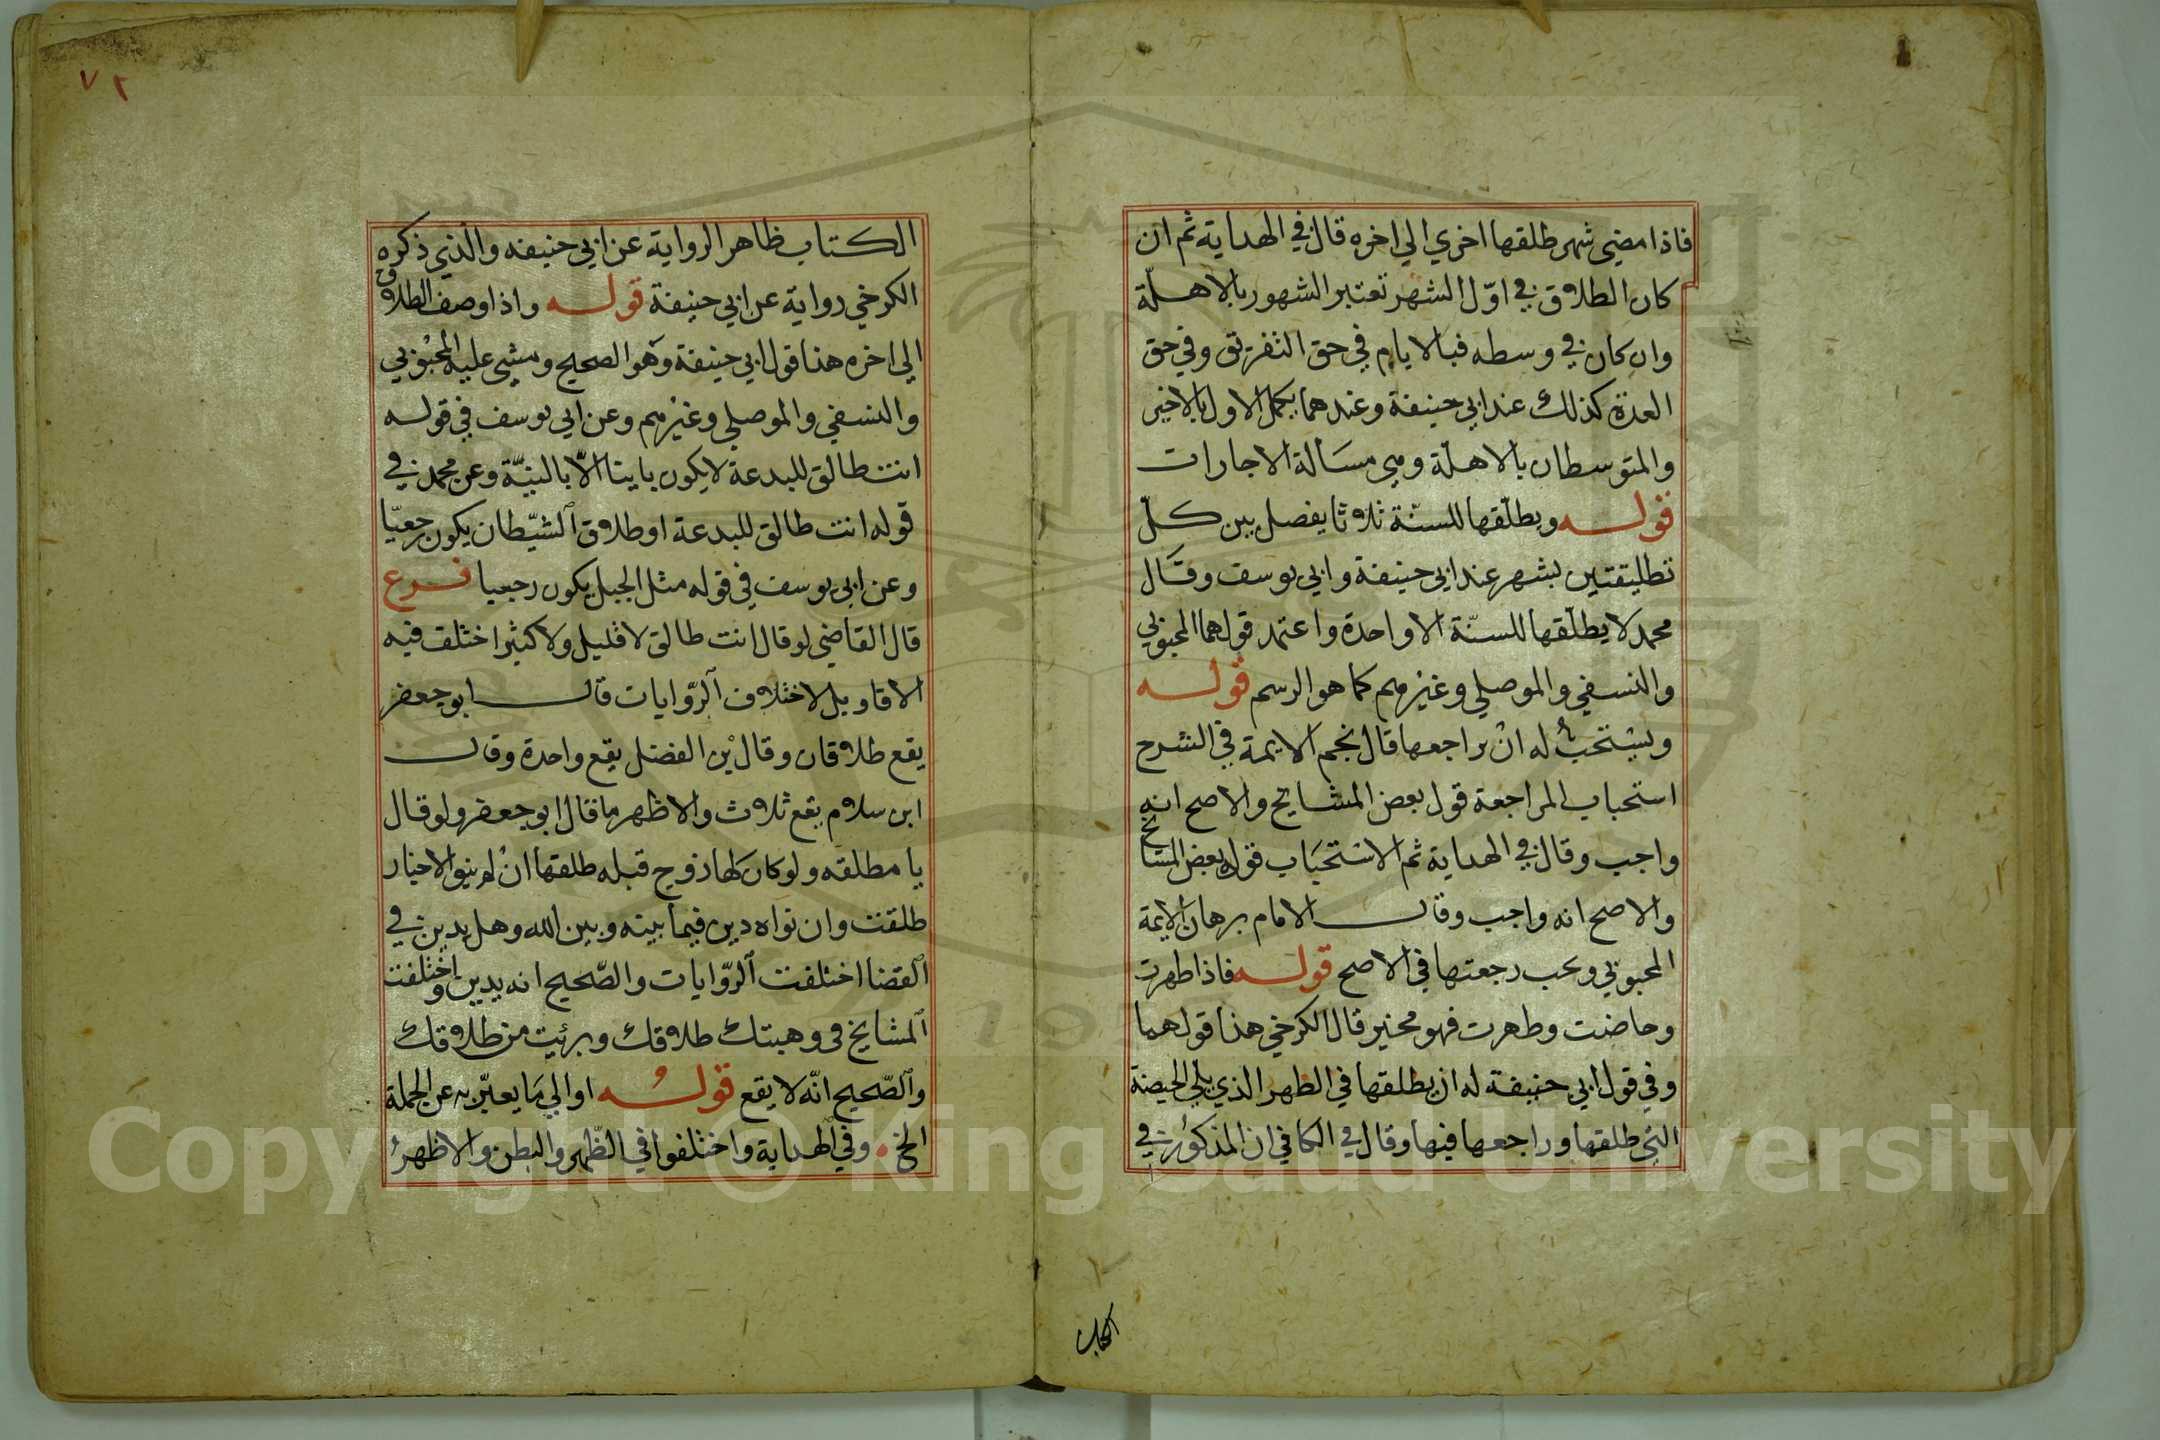 فاذا مضي شهر طلقها اخري الي اخره قال في الهداية ثم ان
كان الطلاق في اوّل الشهر تعتبر الشهور بالاهلّة
وان كان في وسطه فبالايام في حق التفريق وفي حق
العدة كذلك عند ابي حنيفة وعندهما يكمل الاول بالاخير
والمتوسطان بالاهلّة وهي مسألة الاجارات
قوله ويطلّقها للسنّة ثلاثا يفصل بين كلّ
تطليقتين بشهر عند ابي حنيفة وابي يوسف وقال
محمد لا يطلّقها للسنّة الا واحدة واعتمد قولهما المحبوبي
والنسفي والموصلي وغيرهم كما هو الرسم قوله
ويستحبّ له ان يراجعها قال نجم الايمة في الشرح
استحباب المراجعة قول بعض المشايخ والاصح انه
واجب وقال في الهداية ثم الاستحباب قول بعض المشايخ
والاصح انه واجب وقال الامام برهان الايمة
المحبوبي ويجب رجعتها في الاصح قوله فاذا طهرت
وحاضت وطهرت فهو مخير قال الكرخي هذا قولهما
وفي قول ابي حنيفة له ان يطلقها في الطهر الذي يلي الحيضة
التي طلقها وراجعها فيها وقال في الكافي ان المذكور في
الكتاب
٧٢
الكتاب ظاهر الرواية عن ابي حنيفه والذي ذكره
الكرخي رواية عن ابي حنيفة قوله واذا وصف الطلاق
الي اخره هذا قول ابي حنيفة وهو الصحيح ومشي عليه المحبوبي
والنسفي والموصلي وغيرهم وعن ابي يوسف في قوله
انت طالق للبدعة لا يكون باينا الّا بالنيّة وعن محمد في
قوله انت طالق للبدعة او طلاق الشيّطان يكون رجعيّا
وعن ابي يوسف في قوله مثل الجبل يكون رجعيا فرع
قال القاضي لو قال انت طالق لا قليل ولا كثير اختلف فيه
الاقاويل لاختلاف الرّوايات قال ابو جعفر
يقع طلاقان وقال بن الفضل يقع واحدة وقال
ابن سلام يقع ثلاث والاظهر ما قال ابو جعفر ولو قال
يا مطلقه ولو كان لها زوج قبله طلقها ان لم ينو الاخبار
طلقت وان نواه دين فيما بينه وبين الله وهل يدين في
القضا اختلفت الرّوايات والصّحيح انه يدين واختلفت
المشايخ في وهبتك طلاقك وبرئيت من طلاقك
والصّحيح انّه لا يقع قوله او الي ما يعبّر به عن الجملة
الخ وفي الهداية واختلفوا في الظّهر والبطن والاظهر
Copyright © King Saud University